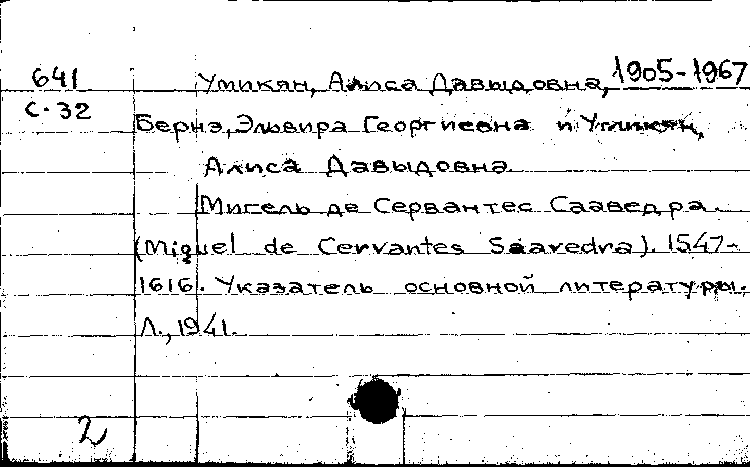 641 Умикян, Алиса Давыдовна, 1905-1967
С-32
Бернэ, Эльвира Георгиевна и Умикян,
Алиса Давыдовна.
Мигель де Сервантес Сааведра.
(Miguel de Cervantes Saavedra). 1547-
1616. Указатель основной литературы.
Л., 1941.
2